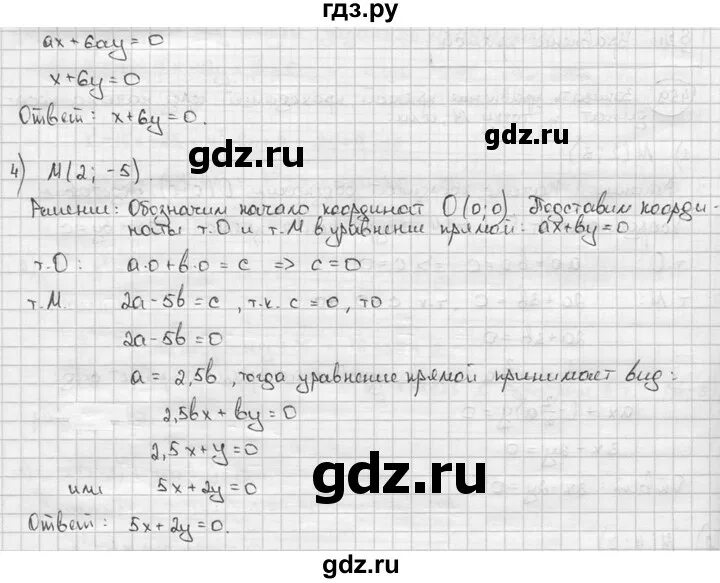 гдз.ру
ax + 6ay = 0
x + 6y = 0
Ответ: x + 6y = 0.
gdz.ru gdz.ru
4) M(2; -5).
Решение: Обозначим начало координат O(0;0). Подставим коорди-
наты т.O и т.M в уравнение прямой: ax+by=0
т.O: a·0+b·0=c => c=0
т.M. 2a-5b=c, т.к. c=0, то
2a-5b=0
a = 2,5b, тогда уравнение прямой принимает вид:
2,5bx + by = 0
2,5x + y = 0
gdz.ru gdz.ru
или 5x + 2y = 0
Ответ: 5x + 2y = 0.
gdz.ru